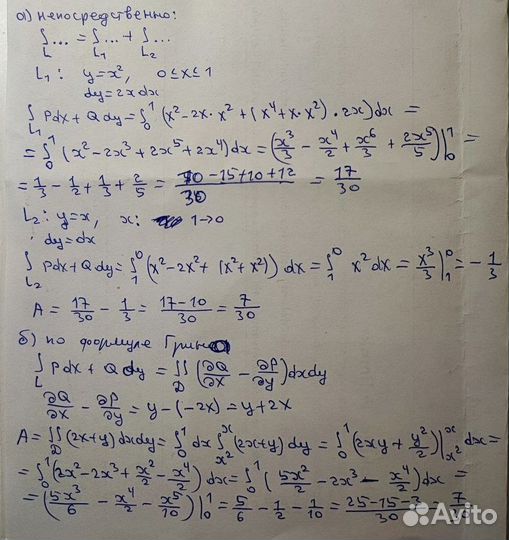 а) непосредственно:
∫_L ... = ∫_{L₁} ... + ∫_{L₂} ...
L₁: y=x², 0≤x≤1
dy=2xdx
∫_{L₁} Pdx + Qdy = ∫₀¹ (x²-2x·x² + (x⁴+x·x²)·2x)dx =
= ∫₀¹ (x²-2x³+2x⁵+2x⁴)dx = (x³/3 - x⁴/2 + x⁶/3 + 2x⁵/5)|₀¹ =
= 1/3 - 1/2 + 1/3 + 2/5 = (10-15+10+12)/30 = 17/30
L₂: y=x, x: 1→0
dy=dx
∫_{L₂} Pdx+Qdy = ∫₁⁰ (x²-2x²+(x²+x²))dx = ∫₁⁰ x²dx = x³/3|₁⁰ = -1/3
A = 17/30 - 1/3 = (17-10)/30 = 7/30
б) по формуле Грина
∫_L Pdx + Qdy = ∬_D (∂Q/∂x - ∂P/∂y)dxdy
∂Q/∂x - ∂P/∂y = y-(-2x) = y+2x
A = ∬_D (2x+y)dxdy = ∫₀¹ dx ∫_{x²}^x (2x+y)dy = ∫₀¹ (2xy + y²/2)|_{x²}^x dx =
= ∫₀¹ (2x²-2x³ + x²/2 - x⁴/2)dx = ∫₀¹ (5x²/2 - 2x³ - x⁴/2)dx =
= (5x³/6 - x⁴/2 - x⁵/10)|₀¹ = 5/6 - 1/2 - 1/10 = (25-15-3)/30 = 7/30
Avito